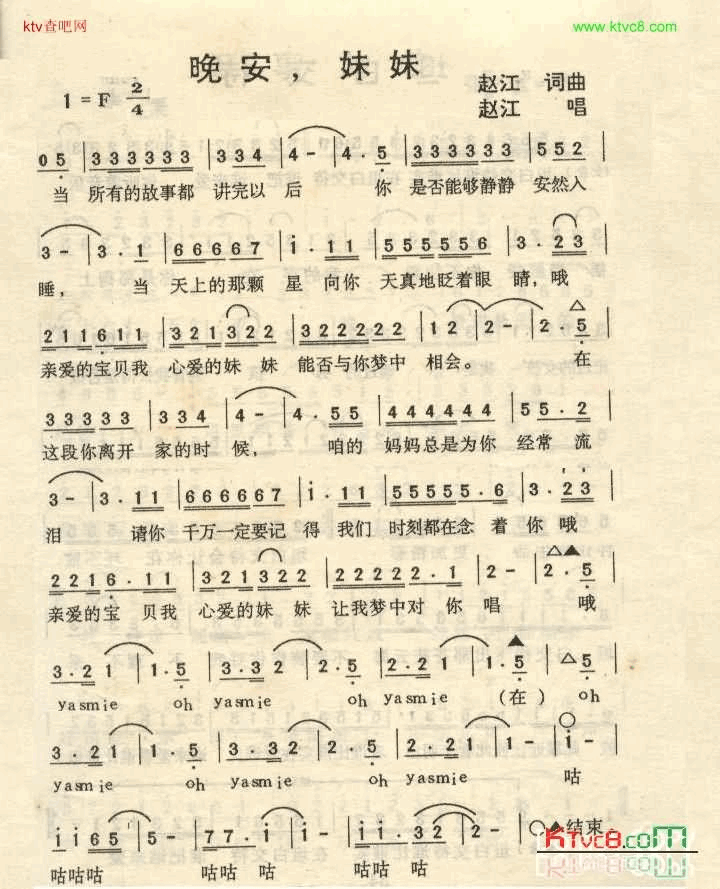 ktv查吧网
www.ktvc8.com
晚安，妹妹
1=F 2/4
赵江 词曲
赵江 唱
05 | 333333 | 334 | 4- | 4.5 | 333333 | 552 |
当 所有的故事都 讲完以 后 你 是否能够静静 安然入
3- | 3.1 | 66667 | i.11 | 555556 | 3.23 |
睡， 当 天上的那颗 星向你 天真地眨着眼 睛，哦
211611 | 321322 | 322222 | 12 | 2- | 2.5 |
亲爱的宝贝我 心爱的妹妹 能否与你梦中 相会。 在
33333 | 334 | 4- | 4.55 | 444444 | 55.2 |
这段你离开 家的时 候， 咱的 妈妈总是为你 经常 流
3- | 3.11 | 666667 | i.11 | 55555.6 | 3.23 |
泪 请你 千万一定要记 得我们 时刻都在念 着你哦
2216.11 | 321322 | 222222.1 | 2- | 2.5 |
亲爱的宝 贝我 心爱的妹 妹 让我梦中对 你 唱 哦
3.21 | 1.5 | 3.32 | 2.5 | 2.221 | 1.5 | 2.5 |
yasmie oh yasmie oh yasmie (在) oh
3.21 | 1.5 | 3.32 | 2.5 | 2.221 | 1- | i- |
yasmie oh yasmie oh yasmie 咕
ii65 | 5- | 77.i | i- | ii.2 | 2- | 结束.
咕咕咕 咕咕 咕 咕咕 咕
KTvc8.com